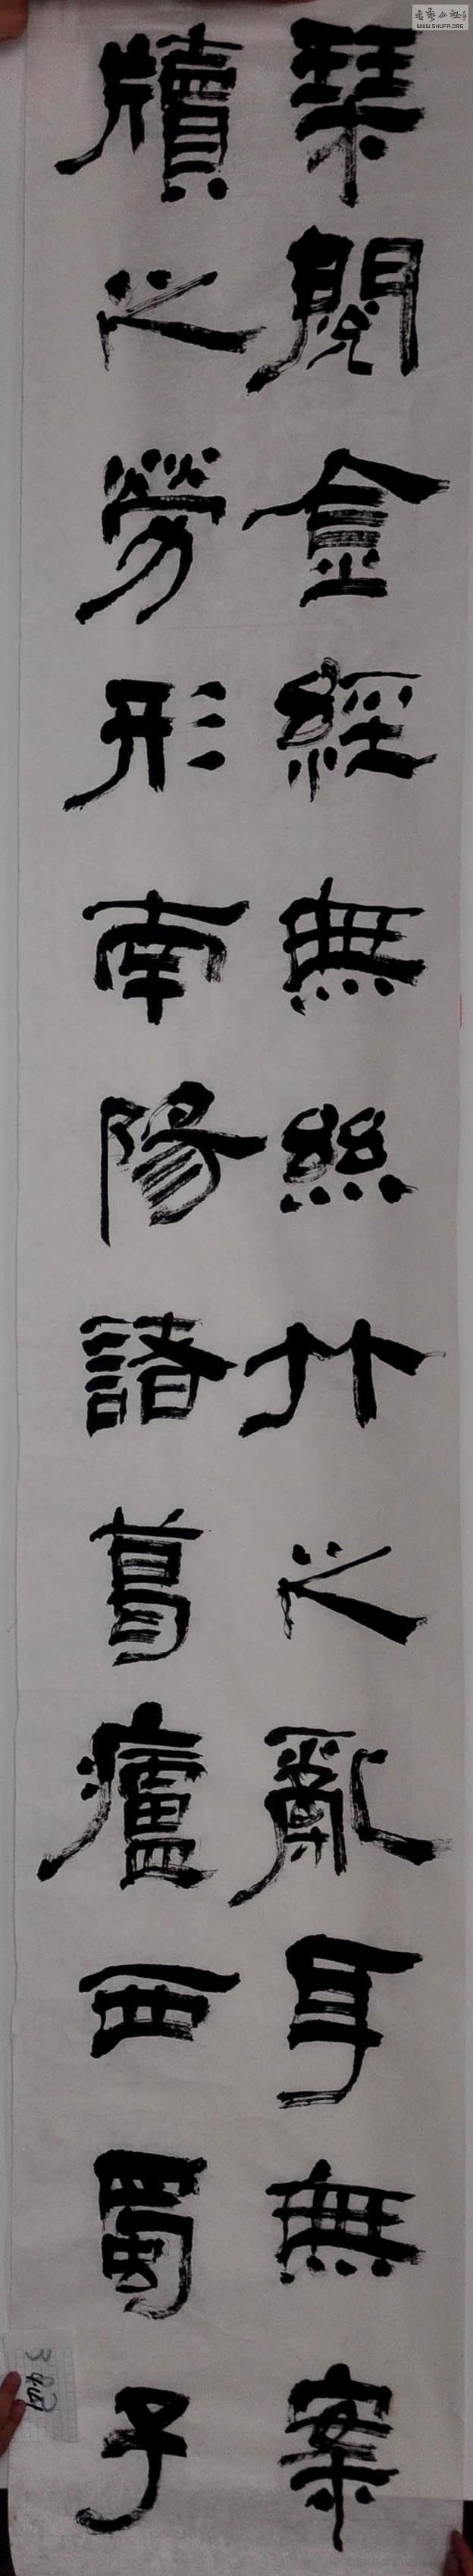 琴閱金經無絲竹之亂耳無案
牘之勞形南陽諸葛廬西蜀子
WWW.SHUFA.ORG